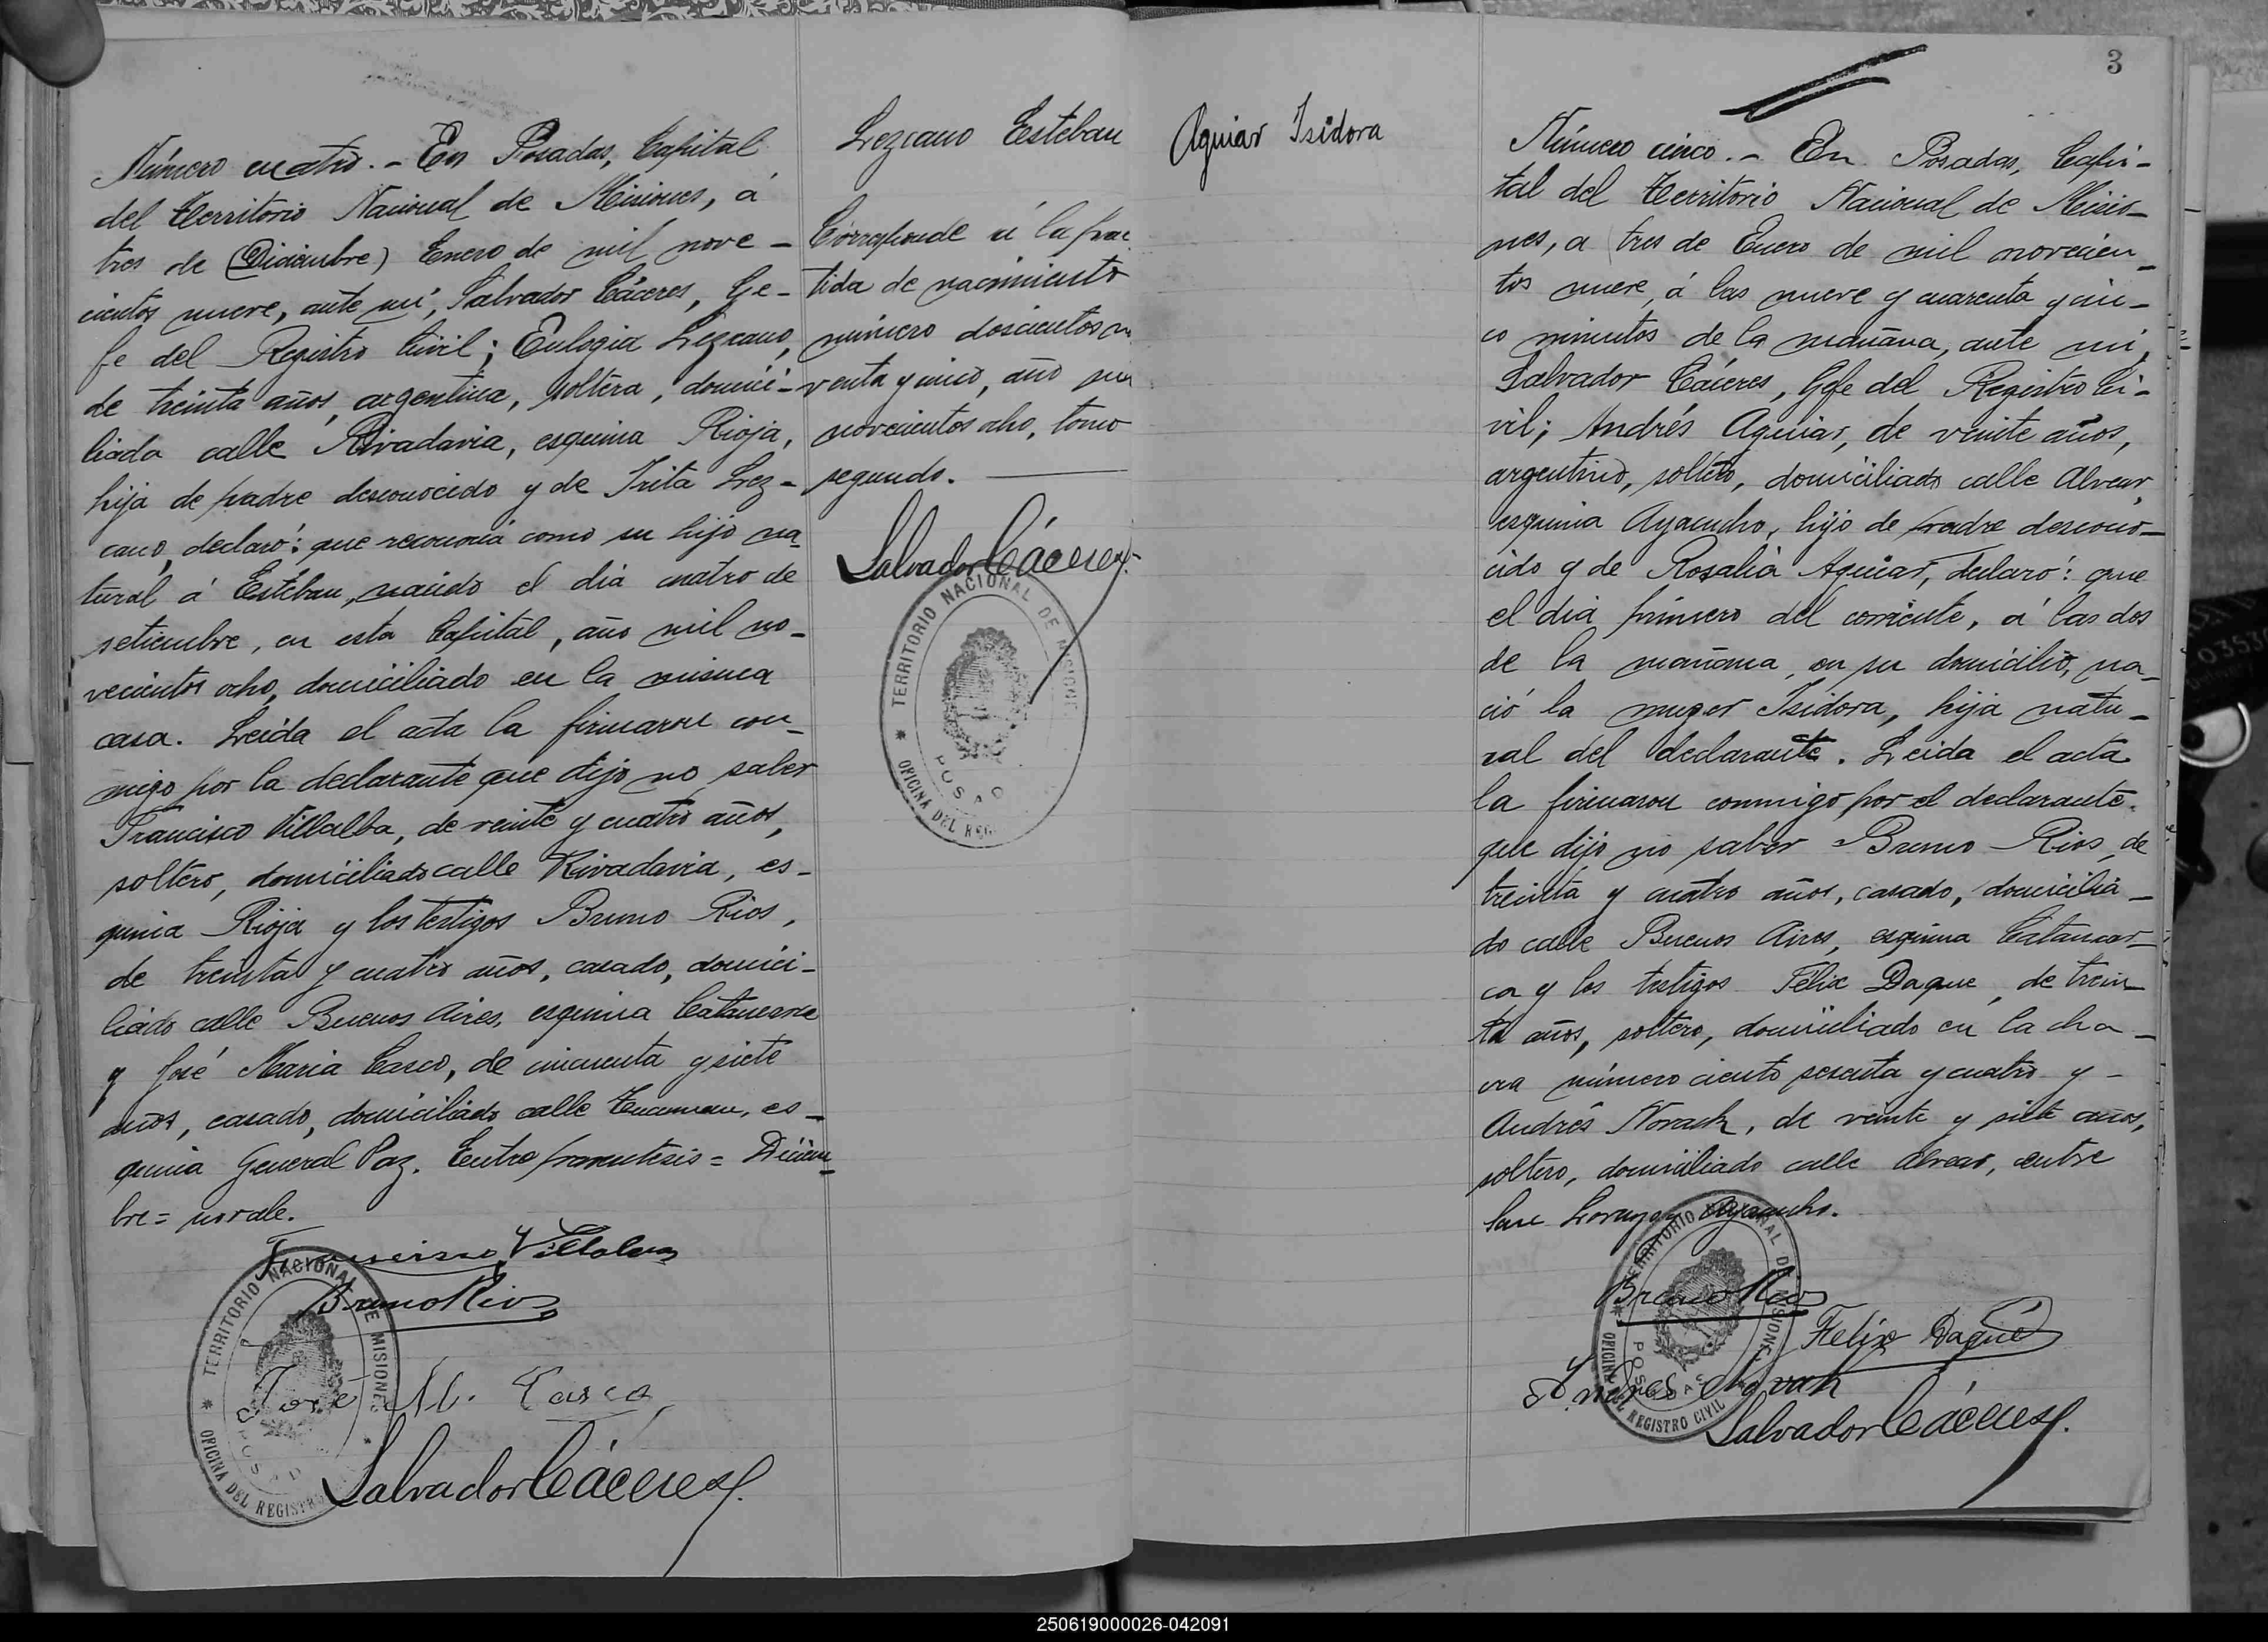 Número cuatro. - En Posadas, Capital
del Territorio Nacional de Misiones, á
tres de (Diciembre) Enero de mil nove-
cientos nueve, ante mí, Salvador Cáceres, Ge-
fe del Registro Civil; Eulogia Lezcano,
de treinta años, argentina, soltera, domici-
liada calle Rivadavia, esquina Rioja,
hija de padre desconocido y de Trita Lez-
cano, declaró: que reconocía como su hijo na-
tural á Estéban, nacido el día cuatro de
setiembre, en esta Capital, año mil no-
vecientos ocho, domiciliado en la misma
casa. Leída el acta la firmaron con-
migo por la declarante que dijo no saber
Francisco Villalba, de veinte y cuatro años,
soltero, domiciliado calle Rivadavia, es-
quina Rioja y los testigos Bruno Rios,
de treinta y cuatro años, casado, domici-
liado calle Buenos Aires, esquina Catamarca
y José Maria Casco, de cincuenta y siete
años, casado, domiciliado calle Tucuman, es-
quina General Paz. Entre parentesis = Diciem-
bre = no vale.
Francisco Villalba
Bruno Rios
José M. Casco
Salvador Cáceres
TERRITORIO NACIONAL DE MISIONES
OFICINA DEL REGISTRO
POSAD
Lezcano Esteban
Corresponde á la par
tida de nacimiento
número doscientos no
venta y cinco, año
novecientos ocho, tomo
segundo.
Salvador Cáceres
TERRITORIO NACIONAL DE MISIONES
OFICINA DEL REG
POSAD
Aguiar Isidora
3
Número cinco. - En Posadas, Capi-
tal del Territorio Nacional de Misio-
nes, a tres de Enero de mil novecien-
tos nueve, á las nueve y cuarenta y cin-
co minutos de la mañana, ante mí,
Salvador Cáceres, Gefe del Registro Ci-
vil; Andrés Aguiar, de veinte años,
argentino, soltero, domiciliado calle Alvear,
esquina Ayacucho, hijo de padre descono-
cido y de Rosalía Aguiar, declaró: que
el día primero del corriente, á las dos
de la mañana, en su domicilio, na-
ció la muger Isidora, hija natu-
ral del declarante. Leida el acta
la firmaron conmigo, por el declarante
que dijo no saber Bruno Rios, de
treinta y cuatro años, casado, domicilia-
do calle Buenos Aires, esquina Catamar-
ca y los testigos Félix Daque, de trein-
ta años, soltero, domiciliado en la cha-
cra número ciento sesenta y cuatro y -
Andrés Novack, de veinte y siete años,
soltero, domiciliado calle Alvear, entre
San Lorenzo y Ayacucho.
Bruno Rios
Felix Daque
Andres Novak
Salvador Cáceres
TERRITORIO NACIONAL DE MISIONES
OFICINA DEL REGISTRO CIVIL
POSADAS
250619000026-042091